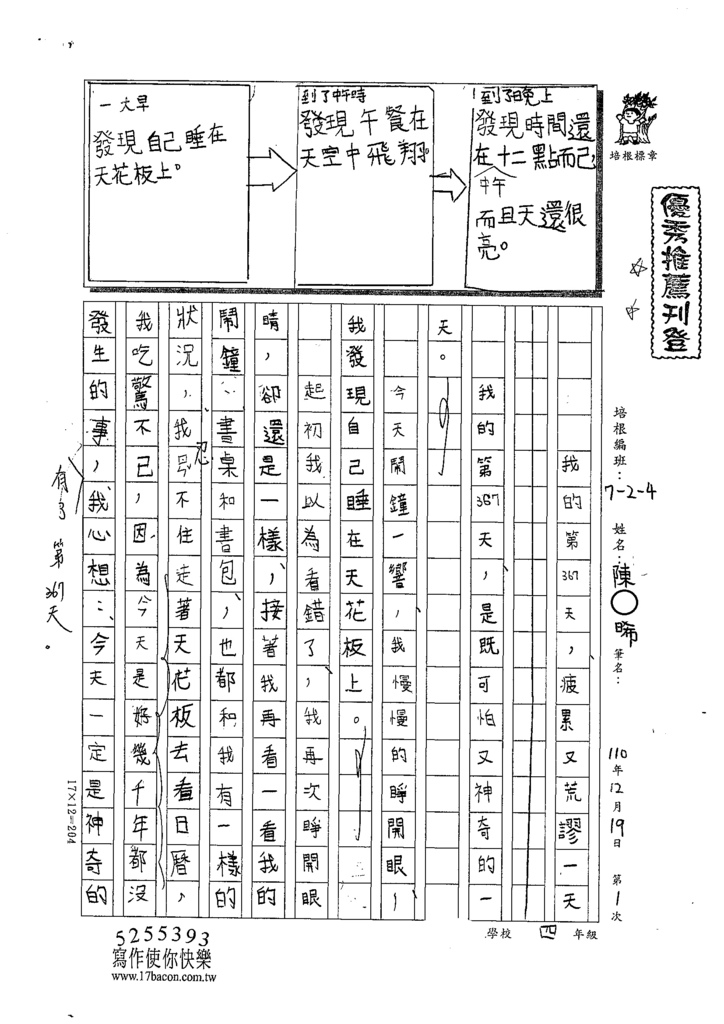 培根標章
優秀推薦刊登
培根編班：7-2-4 姓名：陳○晞 筆名：
110年12月19日 第1次
學校 四 年級
到了晚上
發現時間還
在十二點而已，
中午
而且天還很
亮。
到了中午時
發現午餐在
天空中飛翔。
一大早
發現自己睡在
天花板上。
我的第367天，疲累又荒謬一天
我的第367天，是既可怕又神奇的一
天。
今天鬧鐘一響，我慢慢的睜開眼，
我發現自己睡在天花板上。
起初我以為看錯了，我再次睜開眼
睛，卻還是一樣，接著我再看一看我的
鬧鐘、書桌和書包，也都和我有一樣的
狀況，我忍不住走著天花板去看日曆，
我吃驚不已，因為今天是好幾千年都沒
發生的事，我心想：今天一定是神奇的
有了第367天。
17×12=204
5255393
寫作使你快樂
www.17bacon.com.tw